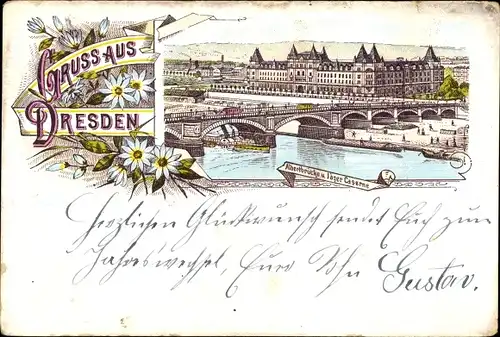 GRUSS AUS
DRESDEN
Albertbrücke u. Jäger Caserne
Herzlichen Glückwunsch sendet Euch zum
Jahreswechsel, Euer Sohn Gustav.